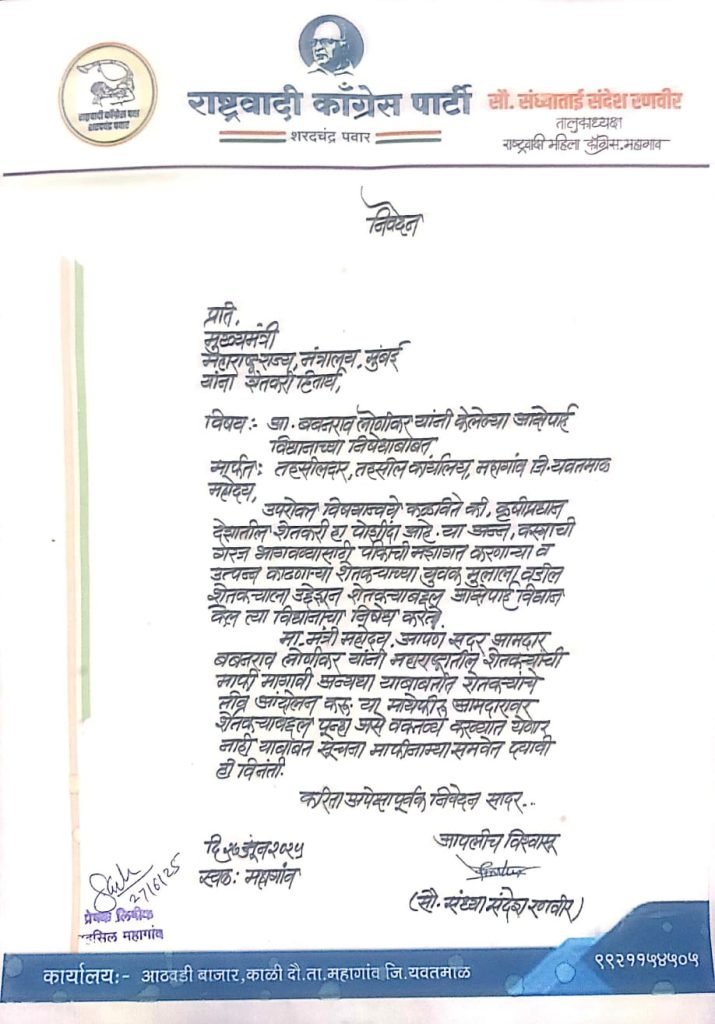 राष्ट्रवादी काँग्रेस पक्ष
शरदचंद्र पवार
राष्ट्रवादी काँग्रेस पार्टी
शरदचंद्र पवार
सौ. संध्याताई संदेश रणवीर
तालुकाध्यक्ष
राष्ट्रवादी महिला काँग्रेस.महागाव
निवेदन
प्रति,
मुख्यमंत्री
महाराष्ट्र राज्य, मंत्रालय. मुंबई
यांना शेतकरी हितार्थ,
विषय:- आ. बबनराव लोणीकर यांनी केलेल्या आक्षेपार्ह
विधानाच्या निषेधाबाबत.
मार्फत: तहसीलदार, तहसील कार्यालय, महागांव जि.यवतमाळ
महोदय,
उपरोक्त विषयान्वये कळविते की, कृषीप्रधान
देशातील शेतकरी हा पोशिंदा आहे. या अन्न, वस्त्राची
गरज भागवण्यासाठी पिकाची मशागत करणाऱ्या व
उत्पन्न काढणाऱ्या शेतकऱ्याच्या युवक मुलाला, वडील
शेतकऱ्याला उद्देशून शेतकऱ्याबद्दल आक्षेपार्ह विधान
केल त्या विधानाचा निषेध करतो.
मा. मंत्री महोदय, आपण सदर आमदार
बबनराव लोणीकर यांनी महाराष्ट्रातील शेतकऱ्यांची
माफी मागावी अन्यथा याबाबतीत शेतकऱ्यांचे
तीव्र आंदोलन करू. या माथेफीरू आमदारावर
शेतकऱ्याबद्दल पून्हा असे वक्तव्य करण्यात येणार
नाही याबाबत सूचना माफीनाम्या समवेत द्यावी
ही विनंती.
करिता अपेक्षापूर्वक निवेदन सादर..
दि २७ जून २०२५
स्थळ: महागांव
आपलीच विश्वासू
(सौ. संध्या संदेश रणवीर)
27/6/25
लिपीक
तहसिल महागांव
कार्यालय:- आठवडी बाजार,काळी दौ.ता.महागांव जि.यवतमाळ
९९२११५४५०५